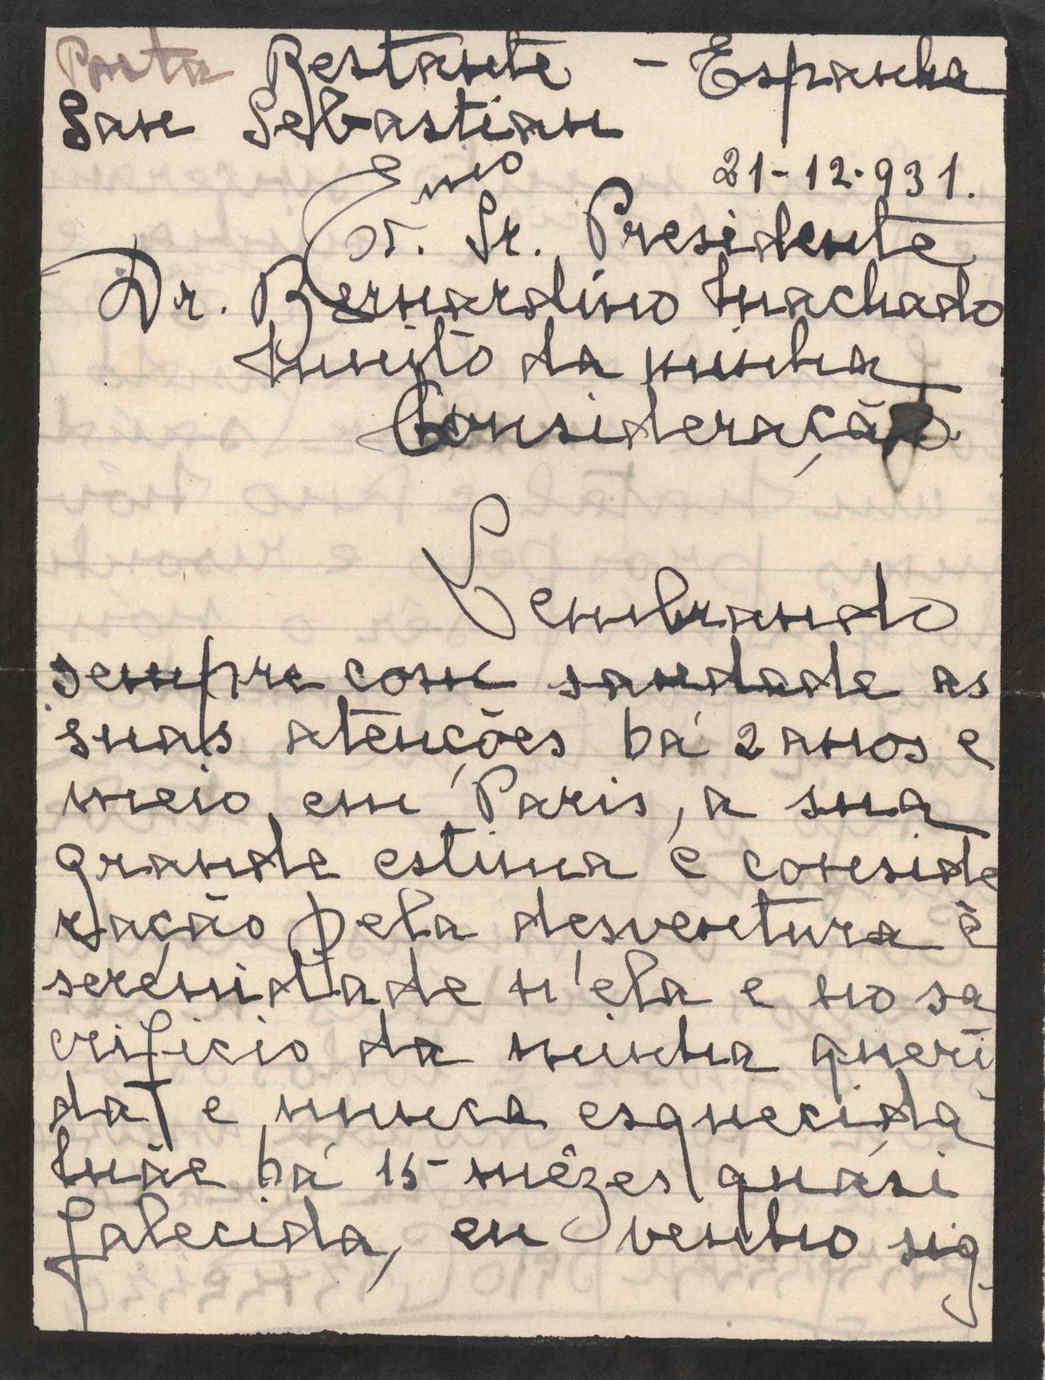 Posta Restante - Espanha
San Sebastian
21-12-931.
Exmo
Sr. Presidente
Dr. Bernardino Machado
Muito da minha
Consideração
Lembrando
sempre com saudade as
suas atenções há 2 anos e
meio em Paris, a sua
grande estima e conside
ração pela desventura e
serenidade n'ela e no sa
crificio da minha queri
da e nunca esquecida
Mãe há 15 mêzes quási
falecida, eu venho sig